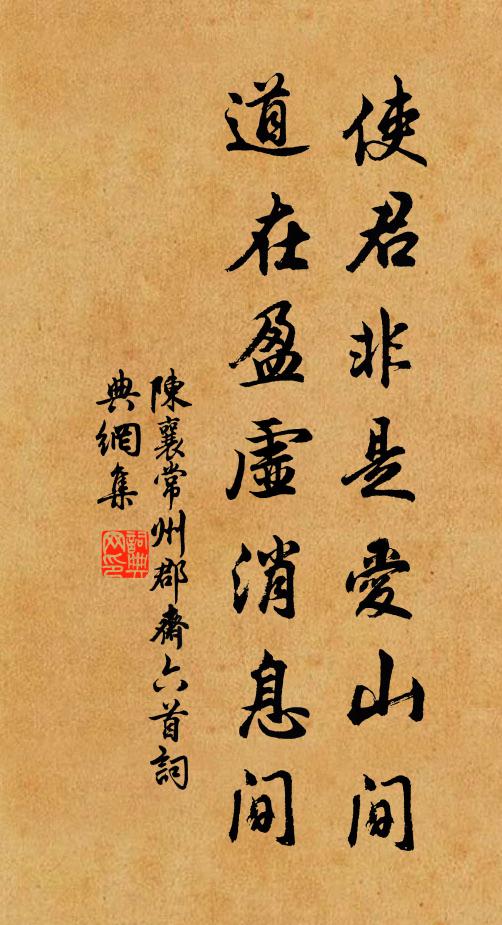 使君非是愛山間
道在盈虛消息間
陳襄常州郡齋六首詞
典網集
詞典
网印